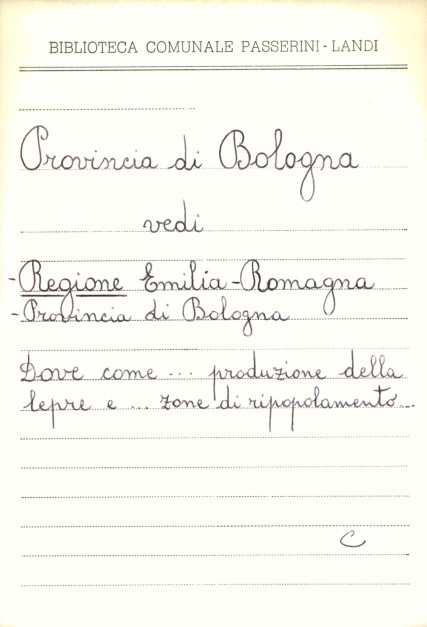 BIBLIOTECA COMUNALE PASSERINI - LANDI
Provincia di Bologna
vedi
- Regione Emilia - Romagna
- Provincia di Bologna
Dove come ... produzione della
lepre e ... zone di ripopolamento...
C